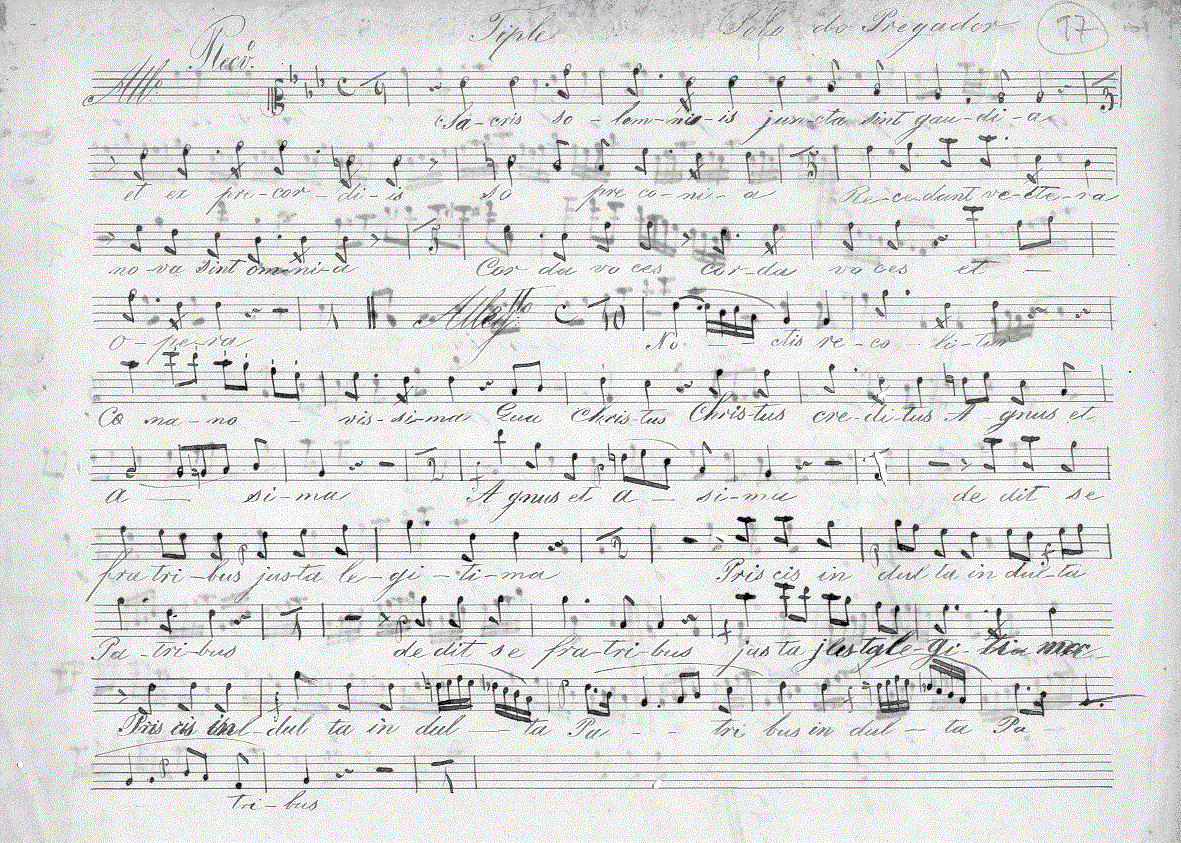 Tiple Solo do Pregador 97
Recvo.
Allo
Sa-cris so-lem-nis-is jun-cta sint gau-di-a
et ex pre-cor-di-is so pre co-ni-a Re-ce-dant ve-te-ra
no-va sint om-ni-a Cor da vo ces cor-da vo ces et -
O-pe-ra Allegtto No - - ctis re-co-li-tur
Cœ na-no - vis-si-ma Qua Chris-tus Chris-tus cre-di-tus A-gnus et
a - si-ma A gnus et a - si-ma de dit se
fra tri-bus jus-ta le-gi-ti-ma Pris cis in dul ta in dul-ta
Pa-tri-bus de dit se fra-tri-bus jus ta justa le-gi-ti ma
Pris cis in dul ta in dul - ta Pa - - tri bus in dul - ta Pa -
tri-bus